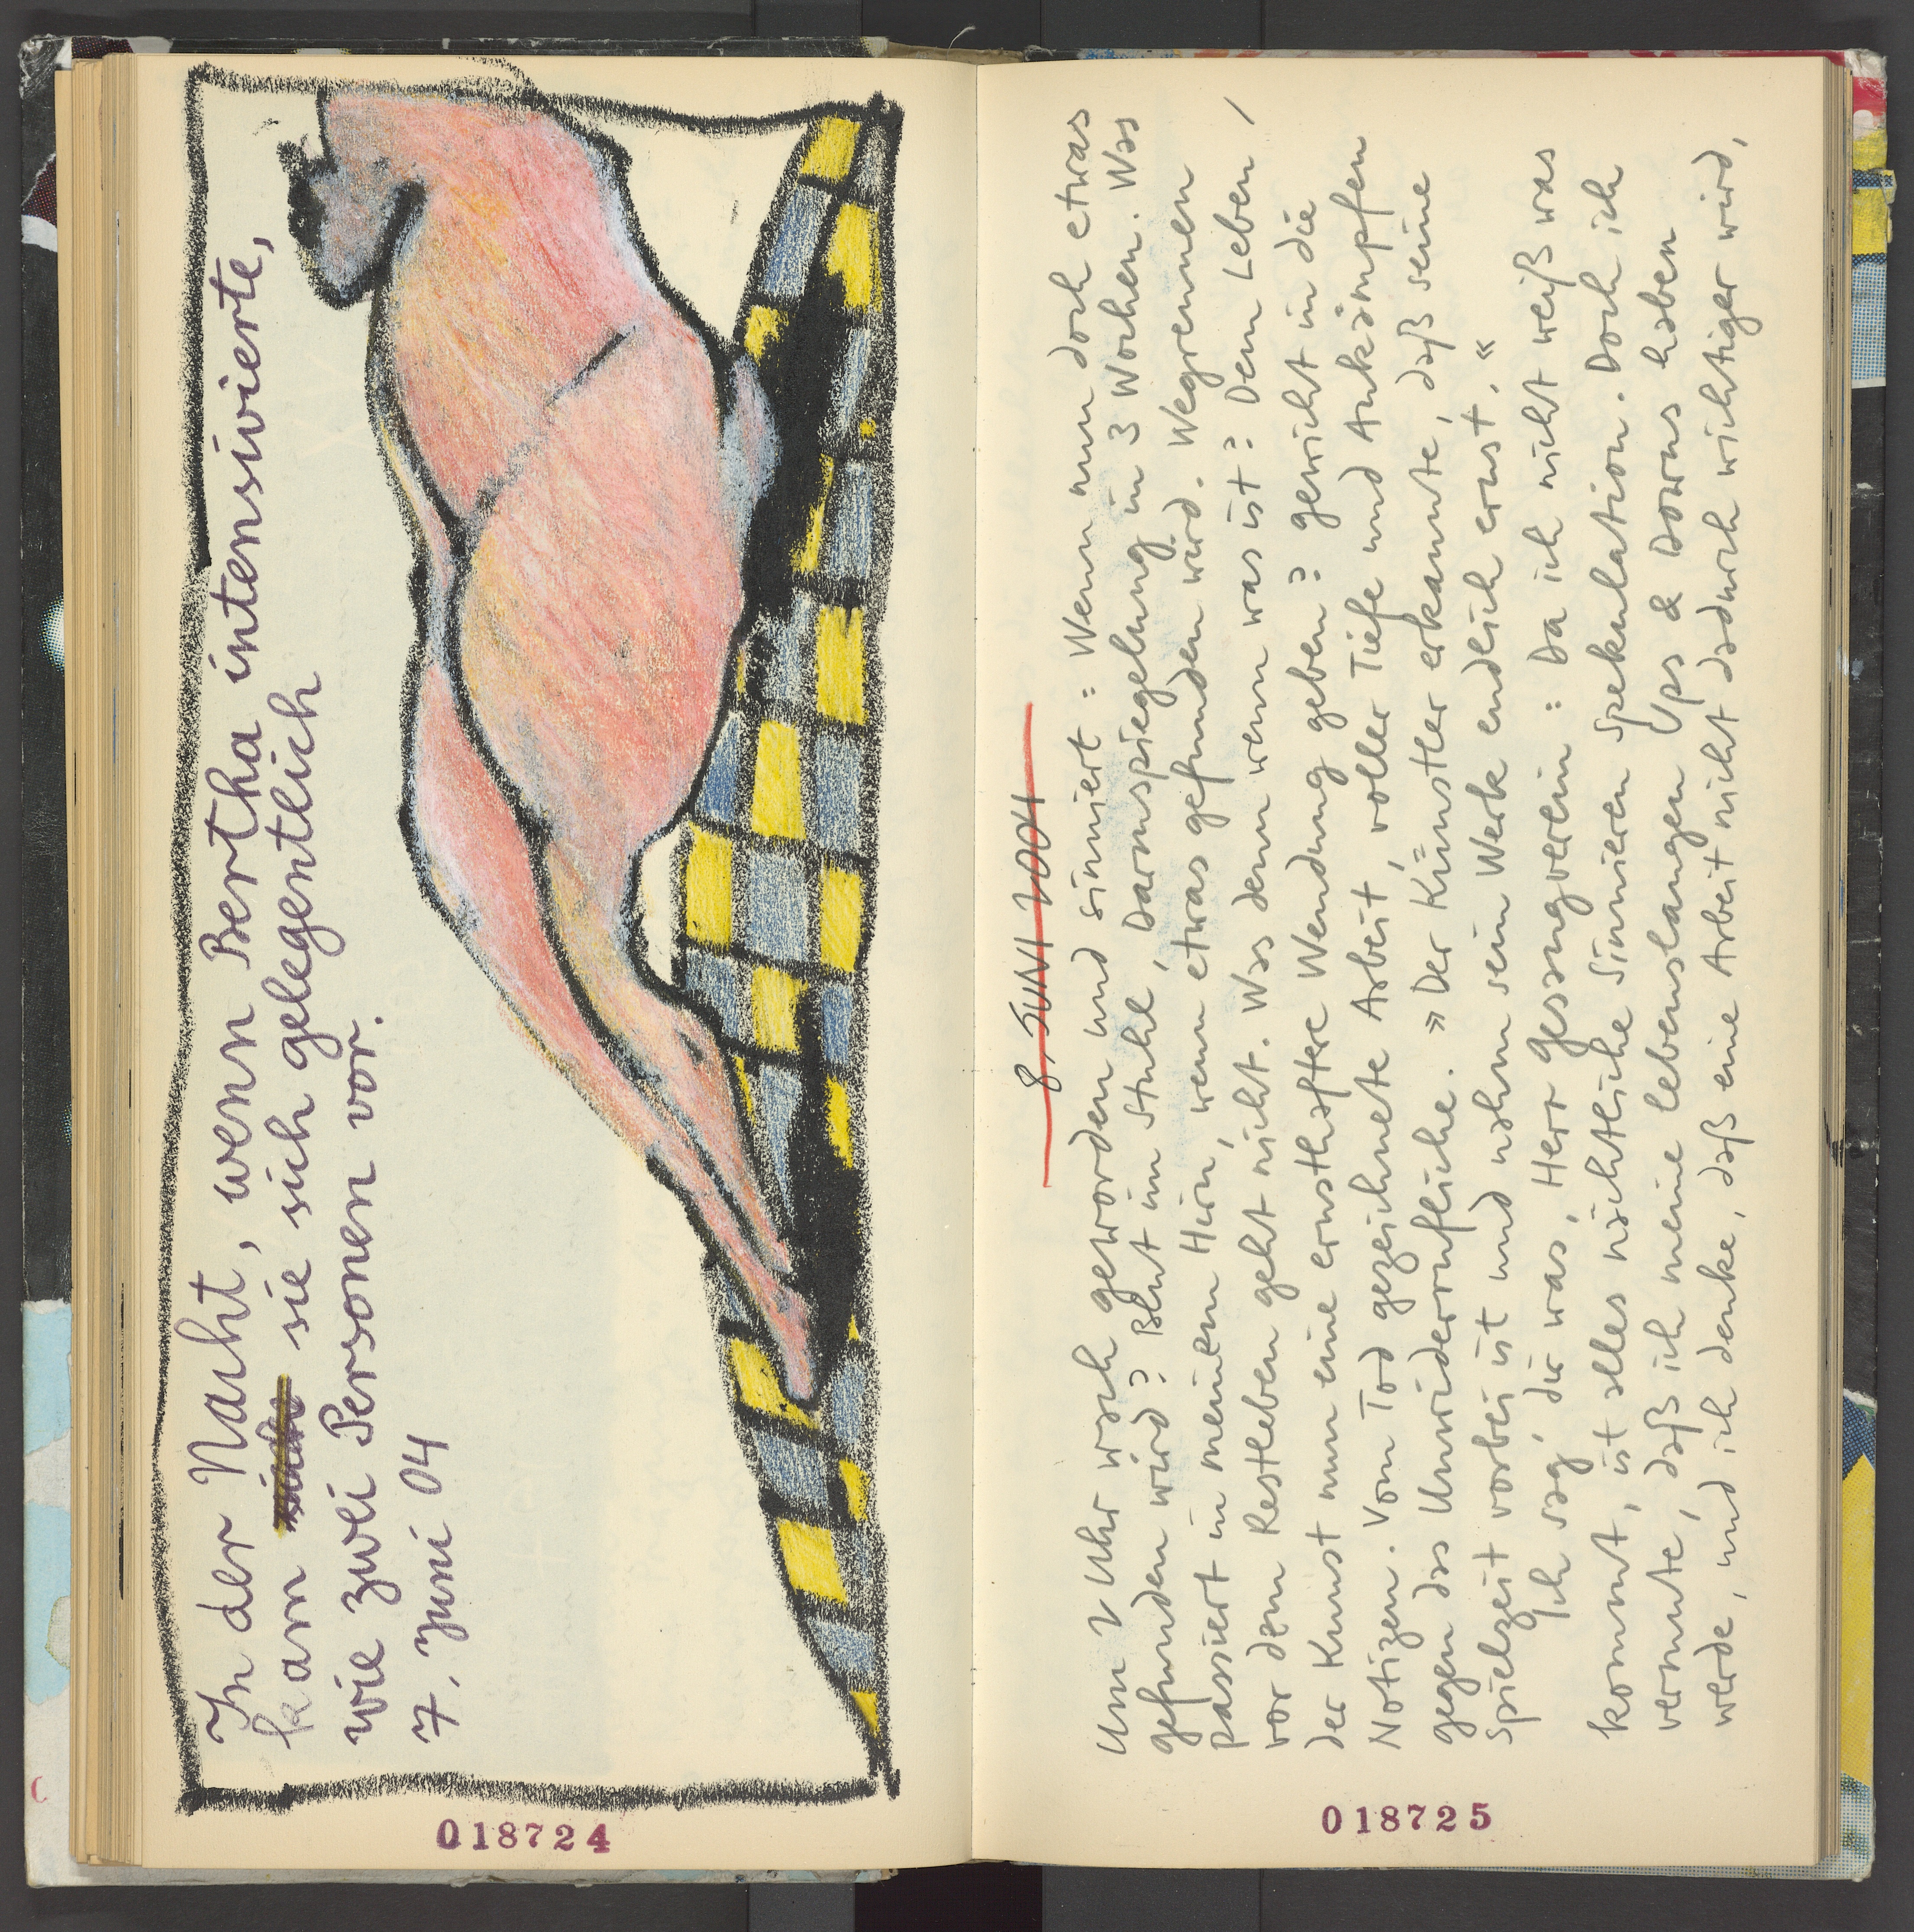 In der Nacht, wenn Bertha intensivierte,
kam sie sich gelegentlich
wie zwei Personen vor.
7. Juni 04
018724
8. JUNI 2004
Um 2 Uhr wach geworden und sinniert: Wenn nun doch etwas
gefunden wird? Blut im Stuhl, Darmspiegelung in 3 Wochen. Was
passiert in meinem Hirn, wenn etwas gefunden wird. Wegrennen
vor dem Restleben geht nicht. Was denn wenn was ist? Dem Leben /
der Kunst nun eine ernsthaftere Wendung geben? gewicht in die
Notizen. Vom Tod gezeichnete Arbeit, voller Tiefe und Ankämpfen
gegen das Unwiderrufliche. »Der Künstler erkannte, daß seine
Spielzeit vorbei ist und nahm sein Werk endlich ernst.«
Ich sag' dir was, Herr Gesangverein: Da ich nicht weiß was
kommt, ist alles nächtliche Sinnieren Spekulation. Doch ich
vermute, daß ich meine lebenslangen Ups & Downs haben
werde, und ich denke, daß eine Arbeit nicht dadurch wichtiger wird,
018725